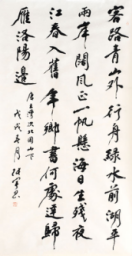 客路青山外行舟綠水前潮平
兩岸闊風正一帆懸海日生殘夜
江春入舊年鄉書何處達歸
雁洛陽邊
唐王灣次北固山下
戊戌年月